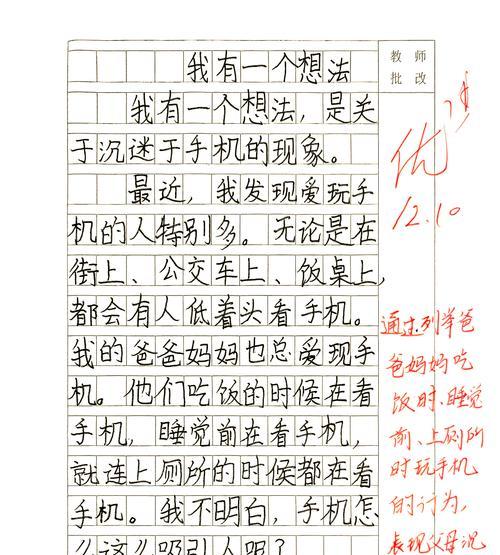 我有一个想法
我有一个想法,是关
于沉迷于手机的现象。
最近,我发现爱玩手
机的人特别多。无论是在
街上、公交车上、饭桌上,
都会有人低着头看手机。
我的爸爸妈妈也总爱现手
机。他们吃饭的时候在看
手机,睡觉前在看手机,
就连上厕所的时候都在看
手机。我不明白,手机怎
吸引人呢?
教师
批改
优
12.10
通过列举爸
爸妈妈吃
饭时、睡觉
前、上厕所
时玩手机
的行为,
表现父母沉